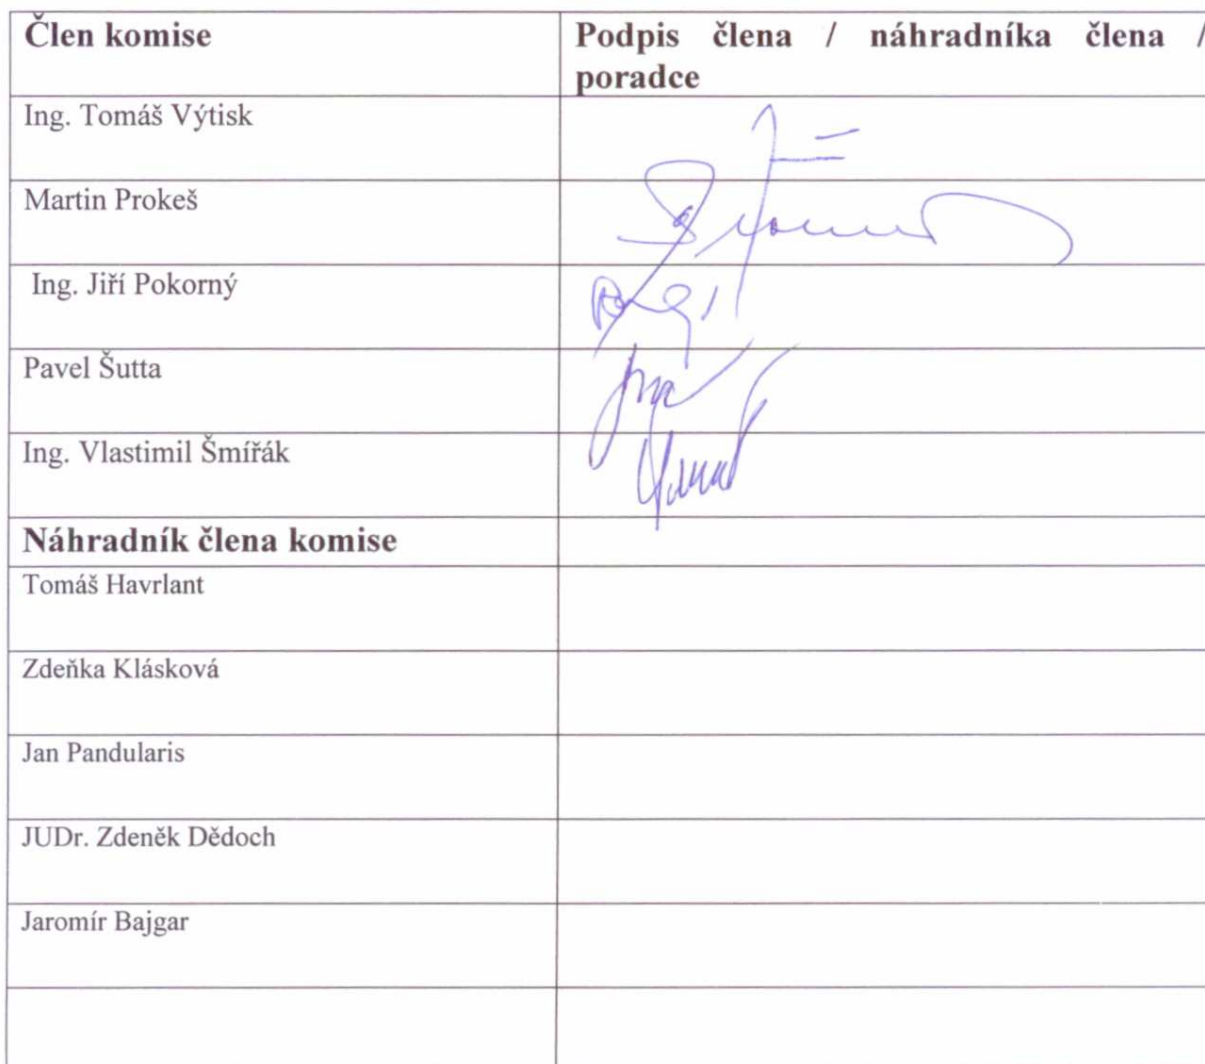 Člen komise
Podpis člena / náhradníka člena /
poradce
Ing. Tomáš Výtisk
Martin Prokeš
Ing. Jiří Pokorný
Pavel Šutta
Ing. Vlastimil Šmířák
Náhradník člena komise
Tomáš Havrlant
Zdeňka Klásková
Jan Pandularis
JUDr. Zdeněk Dědoch
Jaromír Bajgar